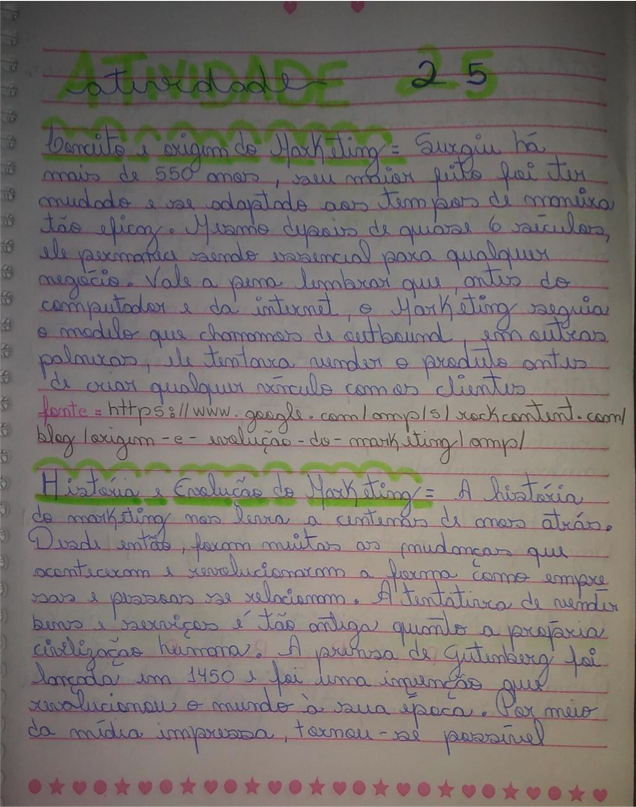 atividade 25
Conceito e origem do Marketing = Surgiu há
mais de 550 anos, seu maior feito foi ter
mudado e se adaptado aos tempos de maneira
tão eficaz. Mesmo depois de quase 6 séculos,
ele permanece sendo essencial para qualquer
negócio. Vale a pena lembrar que, antes do
computador e da internet, o Marketing seguia
o modelo que chamamos de outbound, em outras
palavras, ele tentava vender o produto antes
de criar qualquer vínculo com os clientes
fonte = https://www.google.com/amp/s/rockcontent.com/
blog/origem-e-evolução-do-marketing/amp/
História e Evolução do Marketing = A história
do marketing nos leva a centenas de anos atrás.
Desde então, foram muitas as mudanças que
aconteceram e revolucionaram a forma como empre
sas e pessoas se relacionam. A tentativa de vender
bens e serviços é tão antiga quanto a própria
civilização humana. A prensa de Gutenberg foi
lançada em 1450 e foi uma invenção que
revolucionou o mundo à sua época. Por meio
da mídia impressa, tornou-se possível